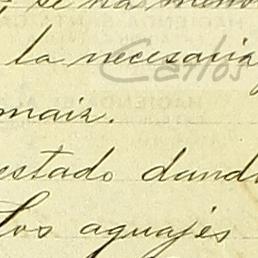 se ha
la necesaria
Carlos
maiz.
estado dand
Los aguajés